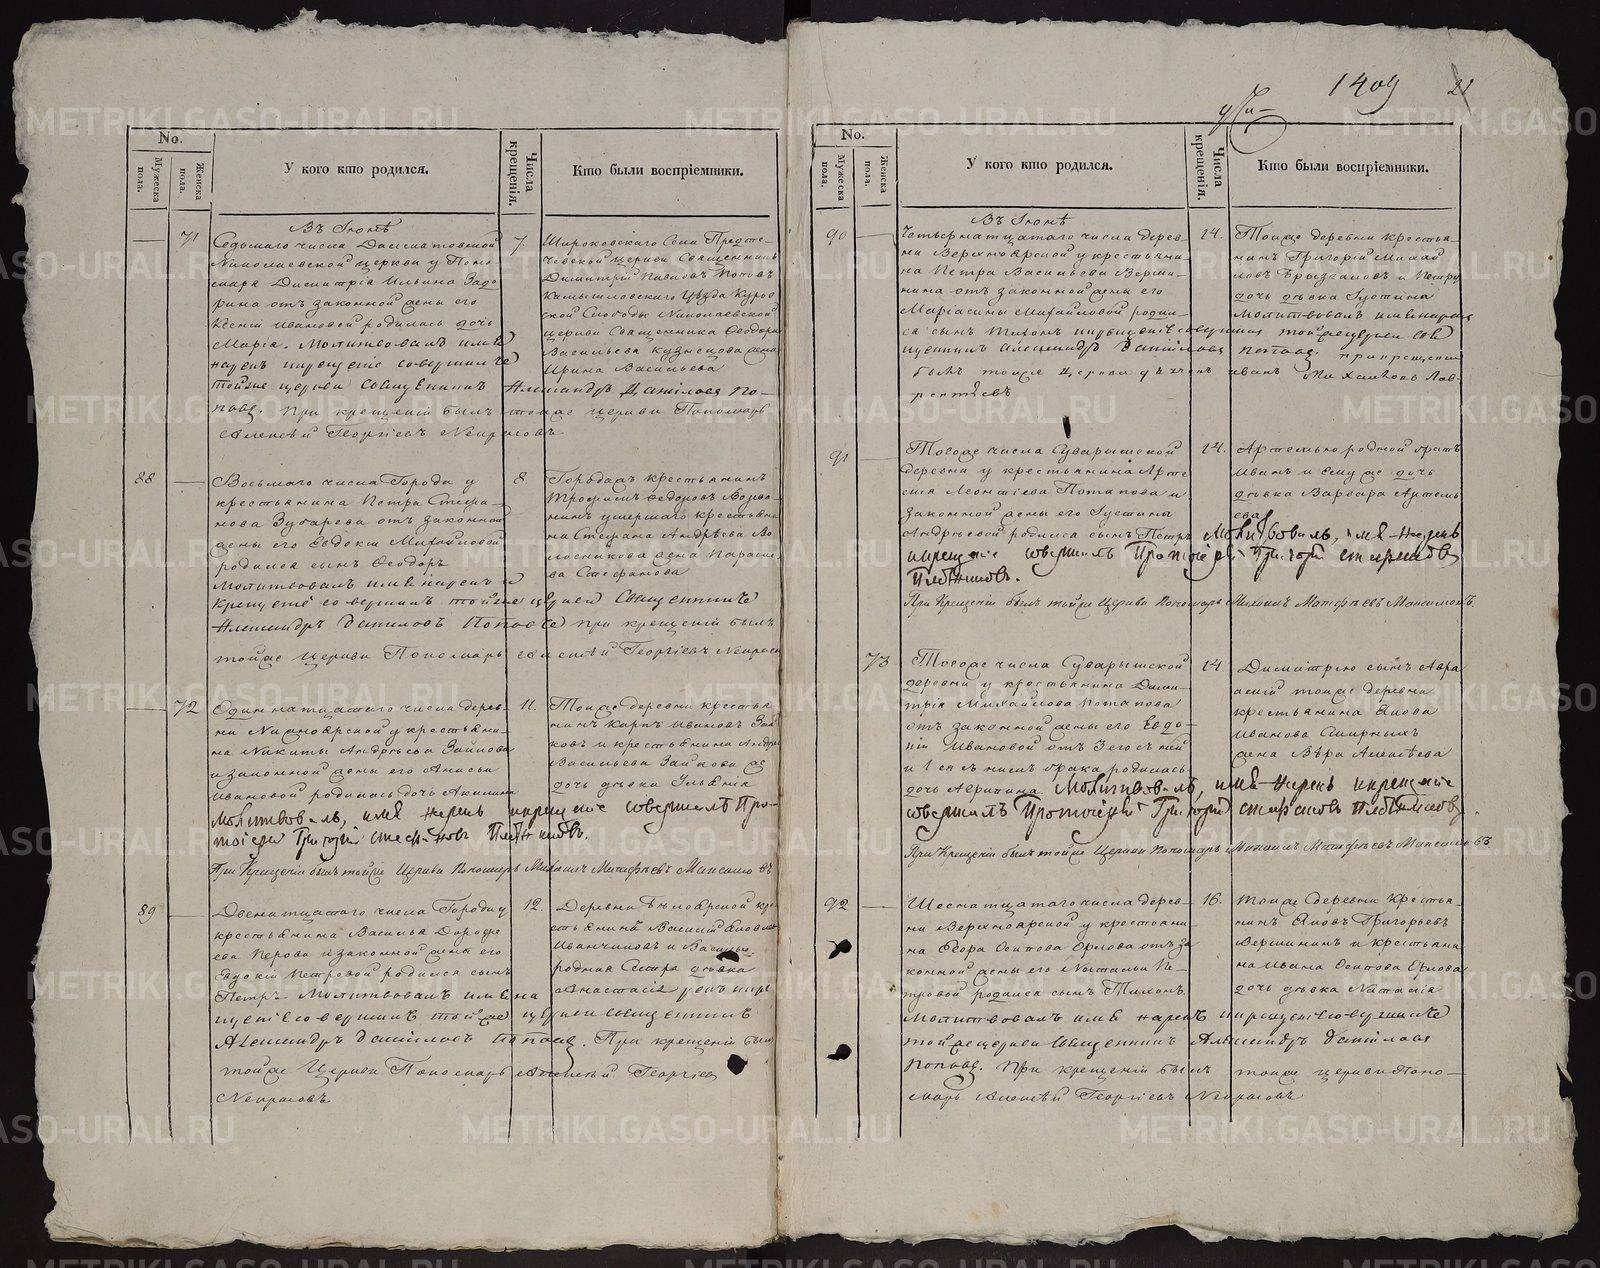 1409 21
No.
Мужеска пола.
Женска пола.
У кого кто родился.
Числа крещенія.
Кто были воспріемники.
Въ Іюнѣ
71
Седьмаго числа Далматовской
Николаевской церкви у Поно
маря Димитрія Ильина
рина отъ законной жены его
Ксеніи Ивановой родилась дочь
Марія. Молитвовалъ имя
нарекъ и крещеніе совершилъ
тойже церкви Священникъ Александръ Даніловъ По-
повъ. При крещеніи былъ тойже церкви Пономарь
Алексѣй Георгіевъ Некрасовъ
7.
Широковскаго Села Предте-
чевской церкви Священникъ
Димитрій Павловъ Поповъ
Камышловскаго Уѣзда
ской Слободы Николаевской
церкви Священника Феодора
Васильева Кузнецова жена
Ирина Васильева
88
Восьмаго числа Города у
крестьянина Петра Степа-
нова Зубарева отъ законной
жены его Евдокіи Михайловой
родился сынъ Феодоръ
Молитвовалъ имя нарекъ и
Крещеніе совершилъ тойже церкви Священникъ
Александръ Даниловъ Поповъ при крещеніи былъ
тойже церкви Пономарь Алексѣй Георгіевъ Некрасов
8
Города крестьянинъ
Трофимъ Федоровъ
нинъ умершаго крестьяни
на Степана Андрѣева Во
лосникова жена Параске
ва Стефанова
72
Одиннатцатаго числа дерев-
ни Нижноярской у крестьяни-
на Никиты Андрѣева Зайкова
и законной жены его Анисьи
Ивановой родилась дочь Акилина
Молитвовалъ, имя нарекъ и крещеніе совершилъ Про-
тоіерей Григорій Стефановъ Плотниковъ.
При Крещеніи былъ тойже Церкви Пономарь Михаилъ Матфѣевъ Максимовъ
11.
Тойже деревни крестья
нинъ Карпъ Ивановъ Зай
ковъ и крестьянина Андрея
Васильева Зайкова же
дочь дѣвка Ульянія
89
Двенатцатаго числа Города у
крестьянина Василья Дорофе
ева Перова и законной жены его
Евдокіи Петровой родился сынъ
Петръ Молитвовалъ имя на
рекъ и крещеніе совершилъ тойже церкви священникъ
Александръ Даніловъ Поповъ. При крещеніи был
тойже Церкви Пономарь Алексѣй Георгіев
Некрасовъ
12.
Деревни Бѣлоярской кре
стьянинъ Василій Яковлев
Иванчиковъ и Васильи
родная Сестра дѣвка
Анастасія
No.
Мужеска пола.
Женска пола.
У кого кто родился.
Числа крещенія.
Кто были воспріемники.
Въ Іюнѣ
90
Четырнатцатаго числа дерев-
ни Верхноярской у крестьяни-
на Петра Васильева Верши-
нина отъ законной жены его
Маріамны Михайловой родил-
ся сынъ Тихонъ и крещеніе совершилъ тойже церкви Свя
щенникъ Александръ Даніловъ Поповъ. при крещеніи
былъ тойже Церкви дьячекъ Иванъ Михайловъ Лав-
рентьевъ
14.
Тойже деревни крестья-
нинъ Григорій Михай
ловъ Брызгаловъ и Петра
дочь дѣвка Іустина
Молитвовалъ имя нарекъ
91
Тогоже числа Суварышской
деревни у крестьянина Арте
мія Леонтіева Потапова и
законной жены его Іустины
Андрѣевой родился сынъ Петръ Молитвовалъ, имя нарекъ
и крещеніе совершилъ Протоіерей Григорій Стефановъ
Плотниковъ.
При Крещеніи былъ тойже Церкви Пономарь Михаилъ Матфѣевъ Максимовъ.
14.
Артемью родной братъ
Иванъ и ему же дочь
дѣвка Варвара Артемь
ева
73
Тогоже числа Суварышской
деревни у крестьянина Дими-
трія Михайлова Потапова
отъ законной жены его Евдо-
кіи Ивановой отъ 3го съ ней
и 1 ея съ нимъ брака родилась
дочь Агрипина. Молитвовалъ, имя нарекъ и крещеніе
совершилъ Протоіерей Григорій Стефановъ Плотниковъ.
При Крещеніи былъ тойже Церкви Пономарь Михаилъ Матфѣевъ Максимовъ
14.
Димитрію сынъ Авра
амій тойже деревни
крестьянина Якова
Иванова Смирныхъ
жена Вѣра Алексѣева
92
Шеснатцатаго числа дерев-
ни Верхноярской у крестьяни
на Егора Осипова Орлова отъ за
конной жены его Натальи Пе-
тровой родился сынъ Тихонъ.
Молитвовалъ имя нарекъ и крещеніе совершилъ
тойже церкви священникъ Александръ Даніловъ
Поповъ. При крещеніи былъ тойже церкви Поно-
марь Алексѣй Георгіевъ Некрасовъ
16.
Тойже деревни Крестья-
нинъ Яковъ Григорьевъ
Вершининъ и крестьяни
на Ивана Осипова Орлова
дочь дѣвка Наталія
METRIKI.GASO-URAL.RU